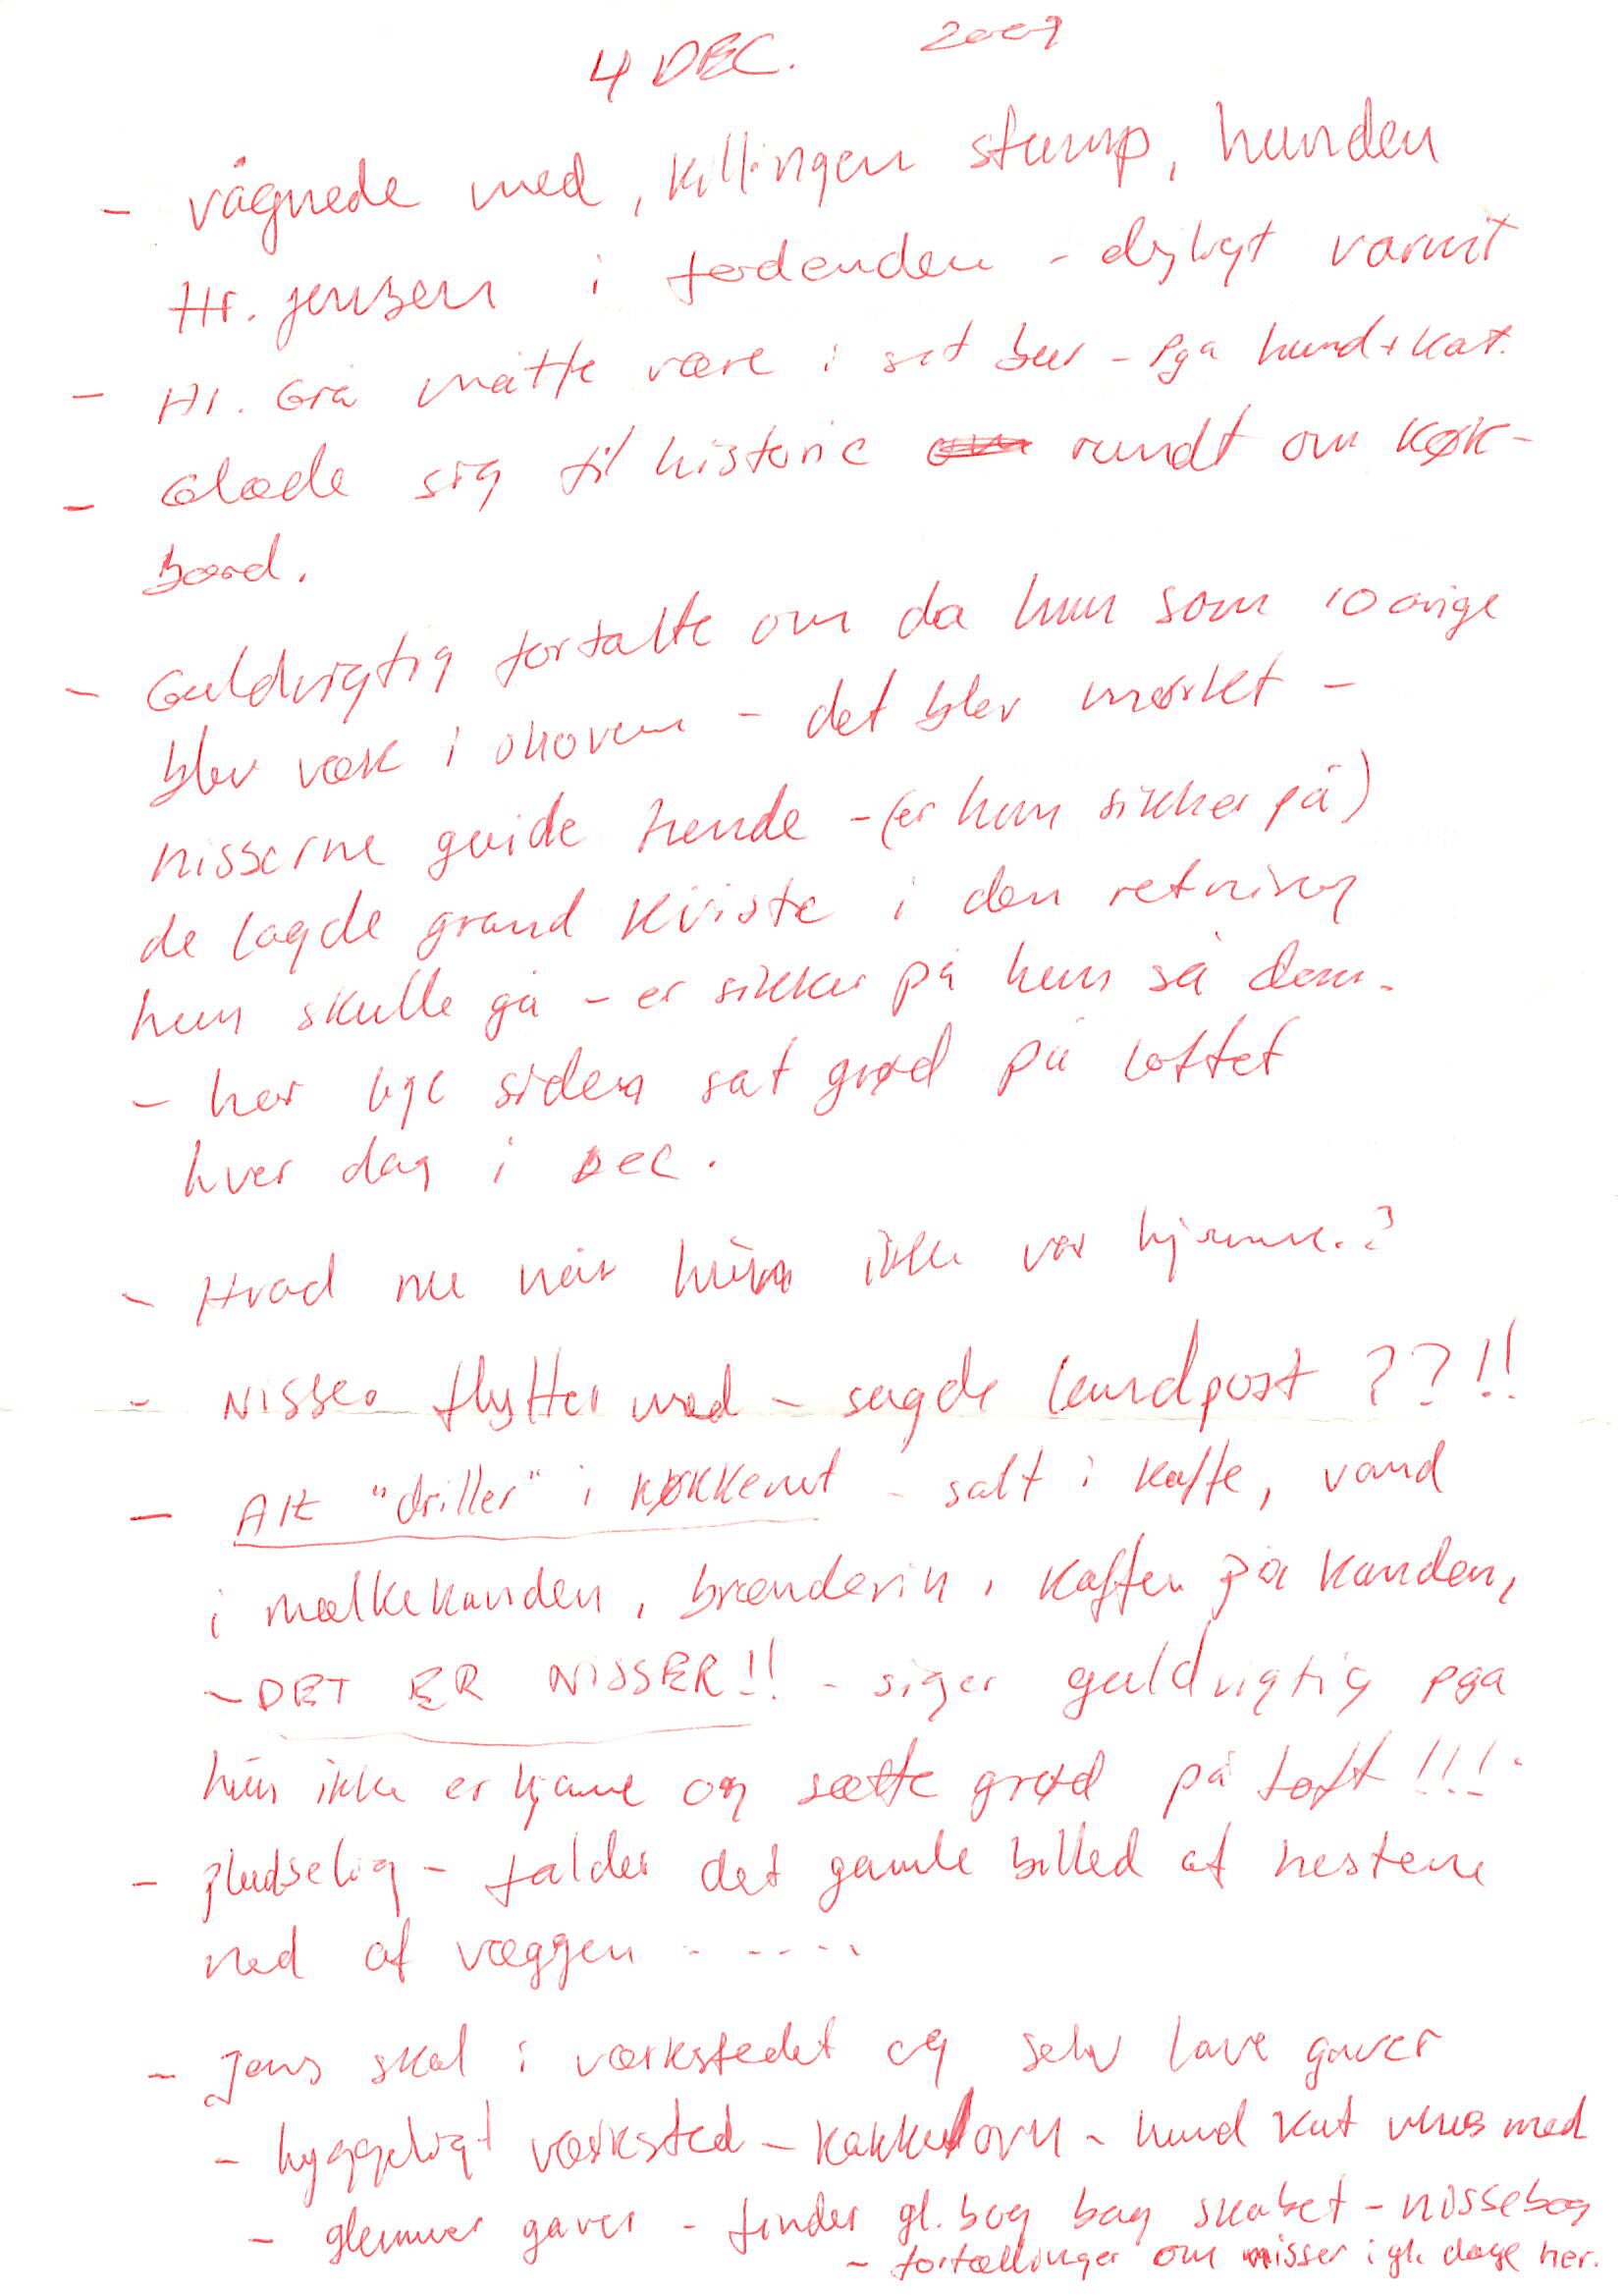 4 DEC. 2009
- vågnede med, killingen stump, hunden
Hr. jensen i fodenden - dejligt varmt
- Hr. Grå måtte være i sit bur - Pga hund + kat.
- Glæde sig til historie rundt om køk-
bord.
- Guldvigtig fortalte om da hun som 10 årige
blev væk i skoven - det blev mørkt -
nisserne guide hende - (er hun sikker på)
de lagde grand kviste i den retning
hun skulle gå - er sikker på hun så dem.
- har lige siden sat grød på loftet
hver dag i DEC.
- Hvad nu når hun ikke var hjemme.?
- Nisser flytter med - sagde landpost ??!!
- Alt "driller" i køkkenet - salt i kaffe, vand
i mælkekanden, brænderin, kaffen på kanden,
- DET ER NISSER!! - siger guldvigtig pga
hun ikke er hjemme og sætte grød på loft!!!
- pludselig - falder det gamle billed af hestene
ned af væggen - - - - -
- Jens skal i værkstedet og selv lave gaver
- hyggeligt værksted - kakkelovn - hund kat mus med
- glemmer gaver - finder gl. bog bag skabet - nissebog
- fortællinger om nisser i gl. dage her.